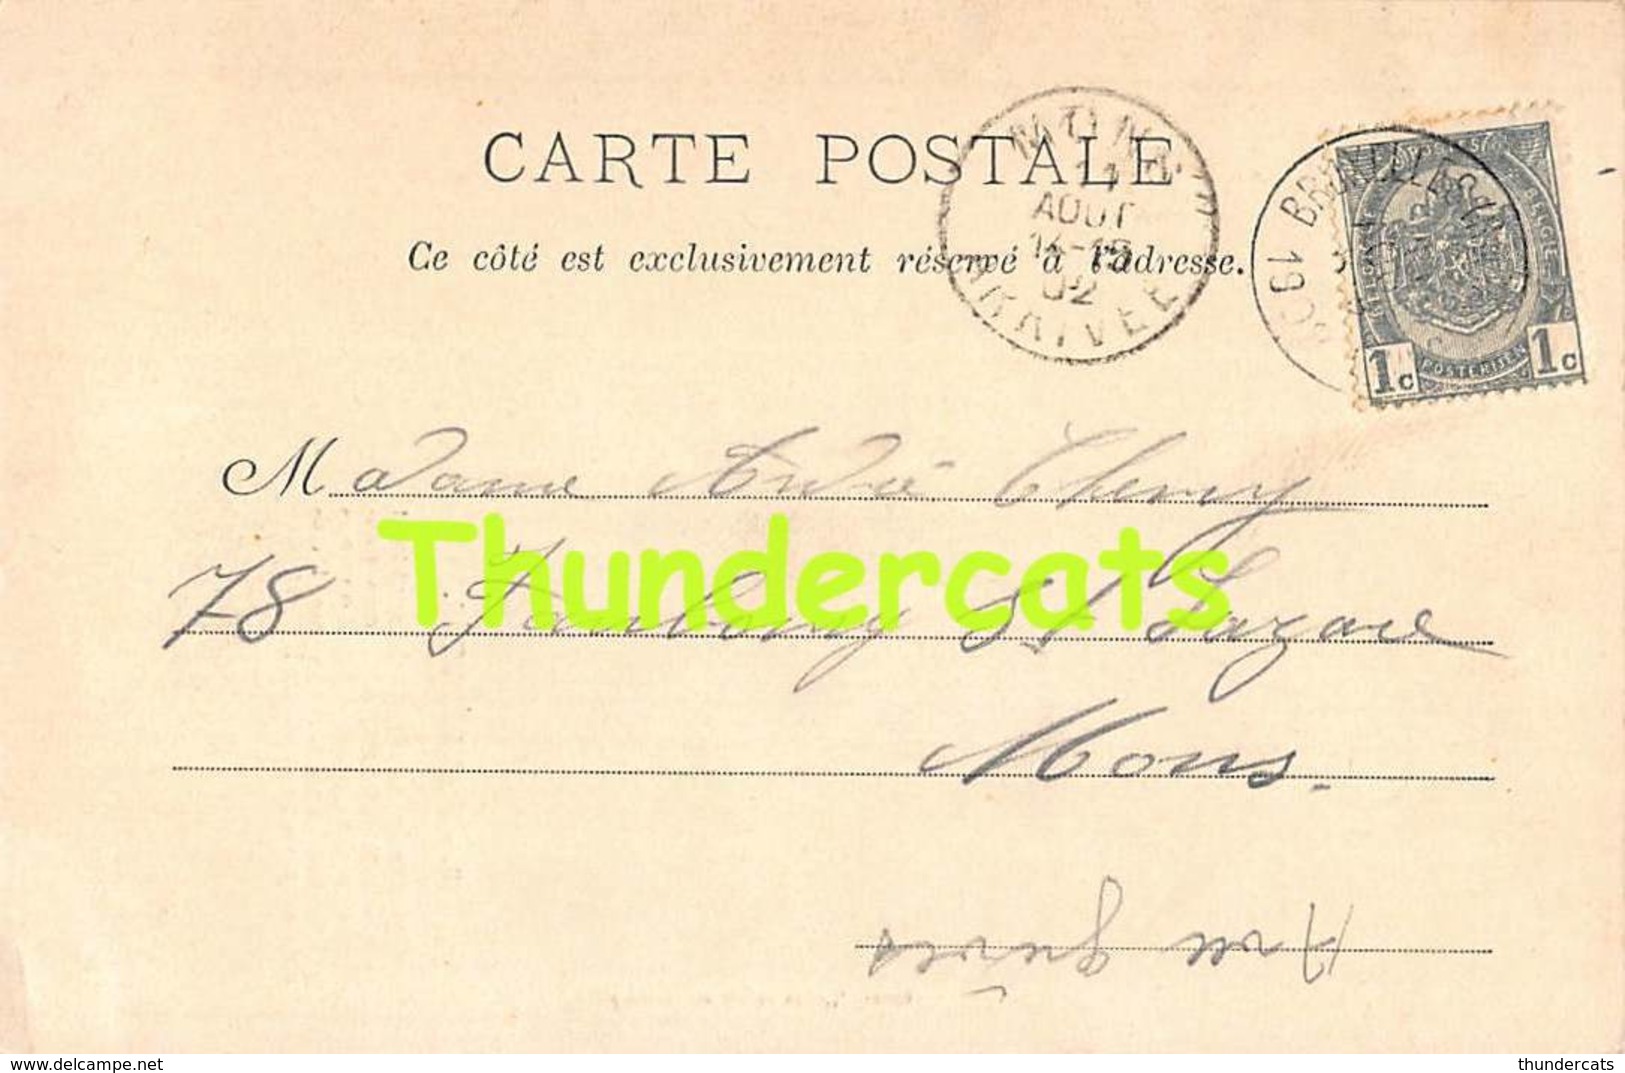 CARTE POSTALE
Ce côté est exclusivement réservé à l'adresse.
MONS
AOUT
02
ARRIVÉE
BRUXELLES
BELGIE
POSTERIJEN
1c 1c
Madame
Thundercats
78 Faubourg St Lazare
Mons.
delcampe.net
thundercats